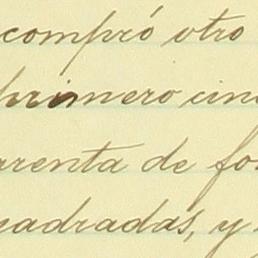 compró otro
primero cinc
arenta de fo
uadradas, y